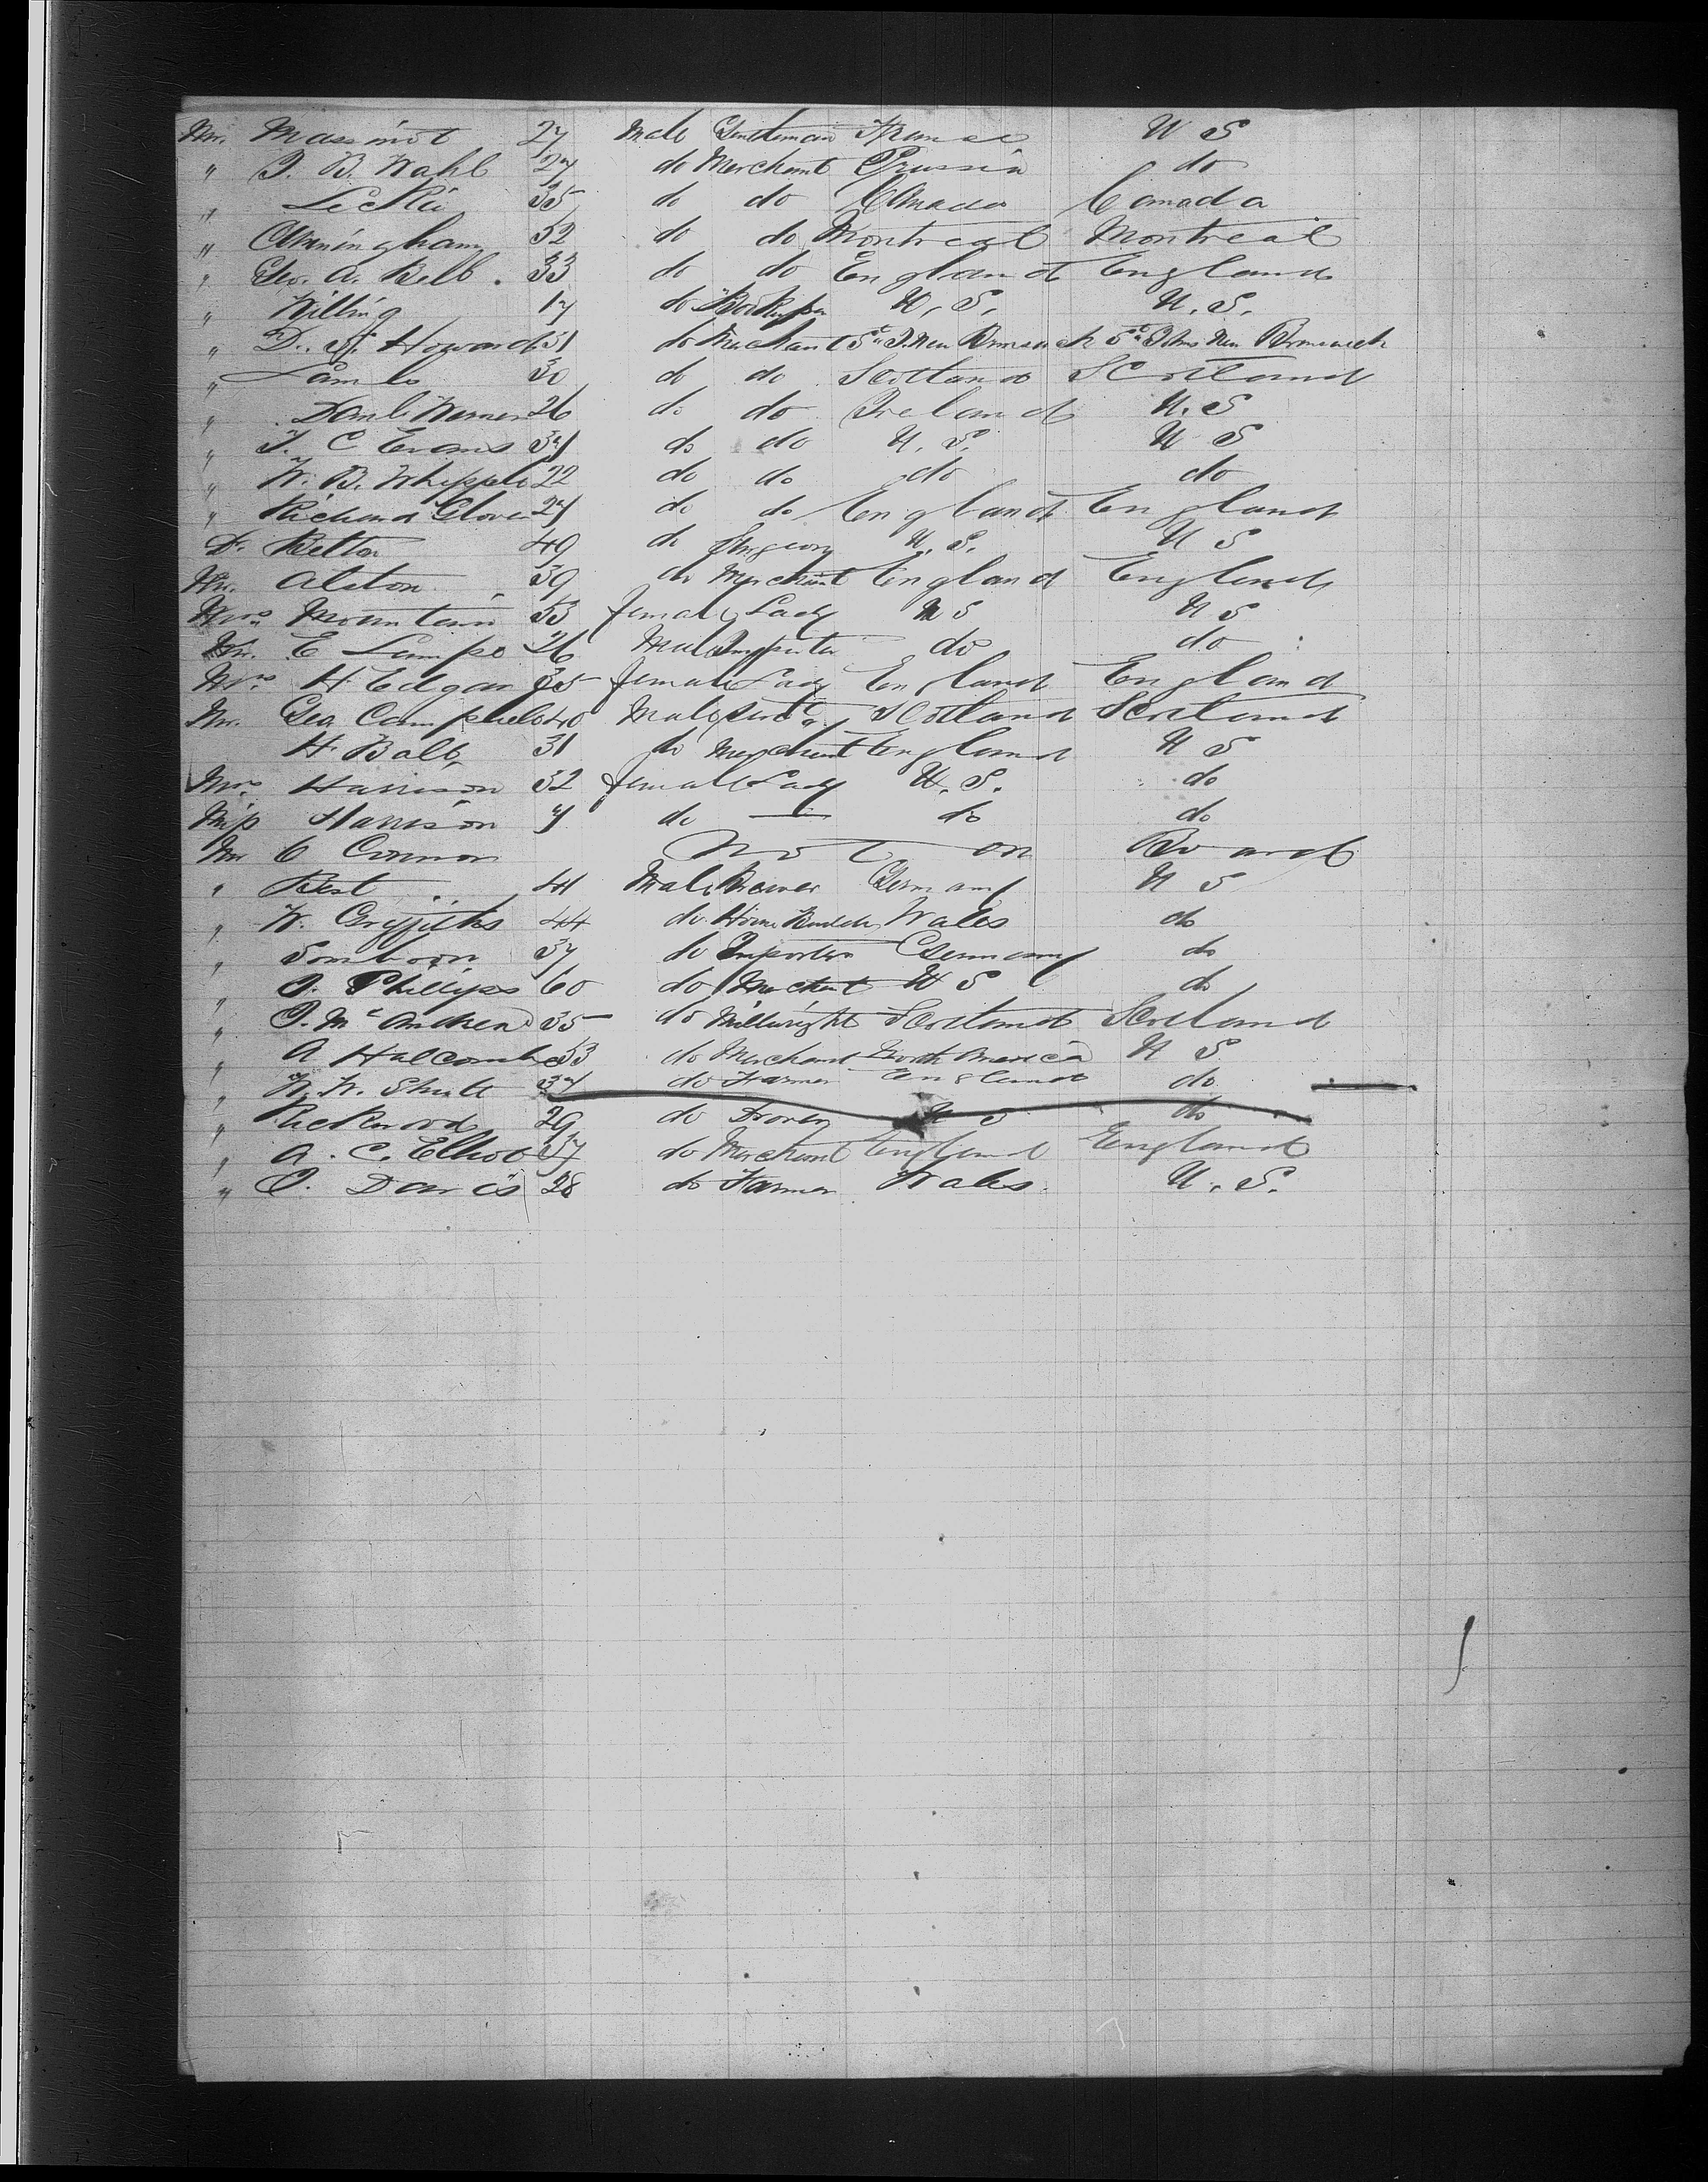 Mr. Massinot 27 Male Gentleman France U S
" J. B. Wahl 27 do Merchant Prussia do
" Leckie 35 do do Canada Canada
" Cunningham 52 do do Montreal Montreal
" Geo. A. Bell. 33 do do England England
" Willing 17 do U, S, U. S,
" D. Howard 51 do Merchant St J. New Brunswick St Johns New Brunswick
" Lamb 30 do do Scotland Scotland
" Danl. Warner 26 do do Ireland U. S
" T. C Evans 37 do do U. S. U S
" W. B. Whipple 22 do do do do
" Richard Glover 27 do do England England
Dr. Belton 49 do Surgeon U. S. U S
Mr. Alston 39 do Merchant England England
Mrs. Mountain 53 Female Lady U S U S
Mr. E 26 Male Importer do do
Mrs. H Edgar 35 Female Lady England England
Mr. Geo Campbell 40 Male Scotland Scotland
H. Ball 31 do Merchant England U S
Mrs. Harrison 32 Female Lady U. S. do
Miss Harrison 7 do — do do
Mr O Connor Not on Board
" Best 41 Male Brewer Germany U S
" W. Griffiths 44 do House Builder Wales do
" 37 do Importer Germany do
" J. Phillips 60 do Merchant U S do
" J. Mc Andrew 35 do Millwright Scotland Scotland
" A Halcombe 53 do Merchant North America U S
" W. W. 37 do Farmer England do
" Rickwood 29 do U S do
" A. C. Elliot 37 do Merchant England England
" J. Davis 28 do Farmer Wales. U. S.